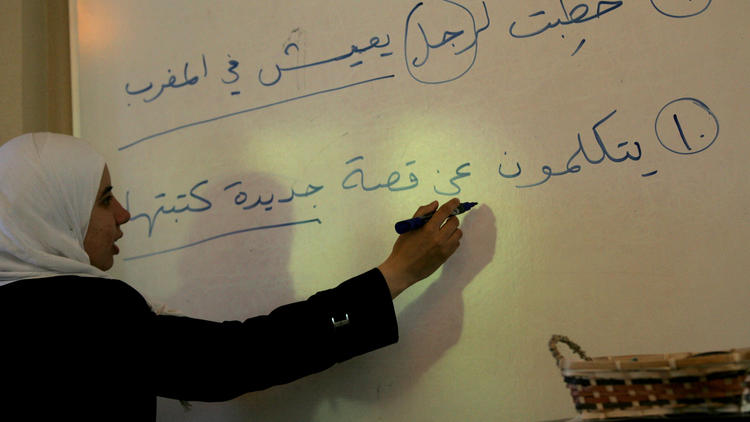 خطِبت لرجل يعيش في المغرب
١٠ يتكلمون عن قصة جديدة كتبتها